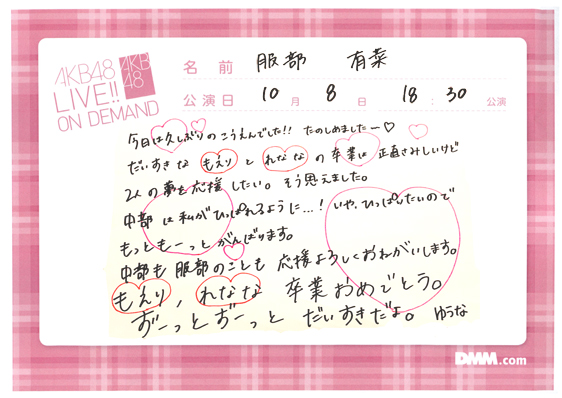 AKB48
LIVE!!
ON DEMAND
AKB
48
名前 服部 有菜
公演日 10月 8日 18:30 公演
今日は久しぶりのこうえんでした!! たのしめましたー♡
だいすきな もえり と れなな の卒業は 正直さみしいけど
2人の夢を応援したい。そう思えました。
中部は私がひっぱれるように…! いや、ひっぱりたいので
もっともーっとがんばります。
中部も服部のことも 応援よろしくおねがいします。
もえり, れなな 卒業おめでとう。
ずーっとずーっと だいすきだよ。 ゆうな
DMM.com